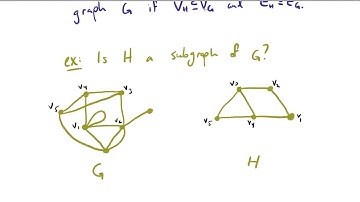 graph G if V_H ⊆ V_G and E_H ⊆ E_G.
ex: Is H a subgraph of G?
v4 v3
v5
v1 v2
G
v3 v2
v5 v4 v1
H